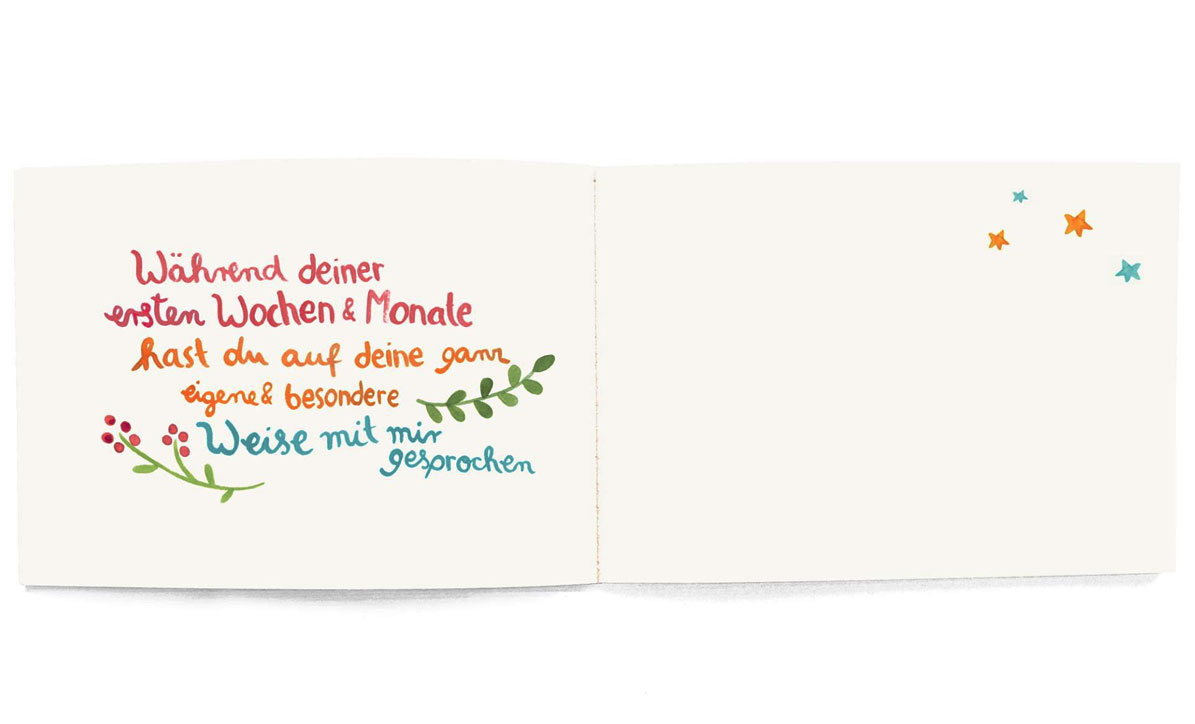 Während deiner
ersten Wochen & Monate
hast du auf deine ganz
eigene & besondere
Weise mit mir
gesprochen